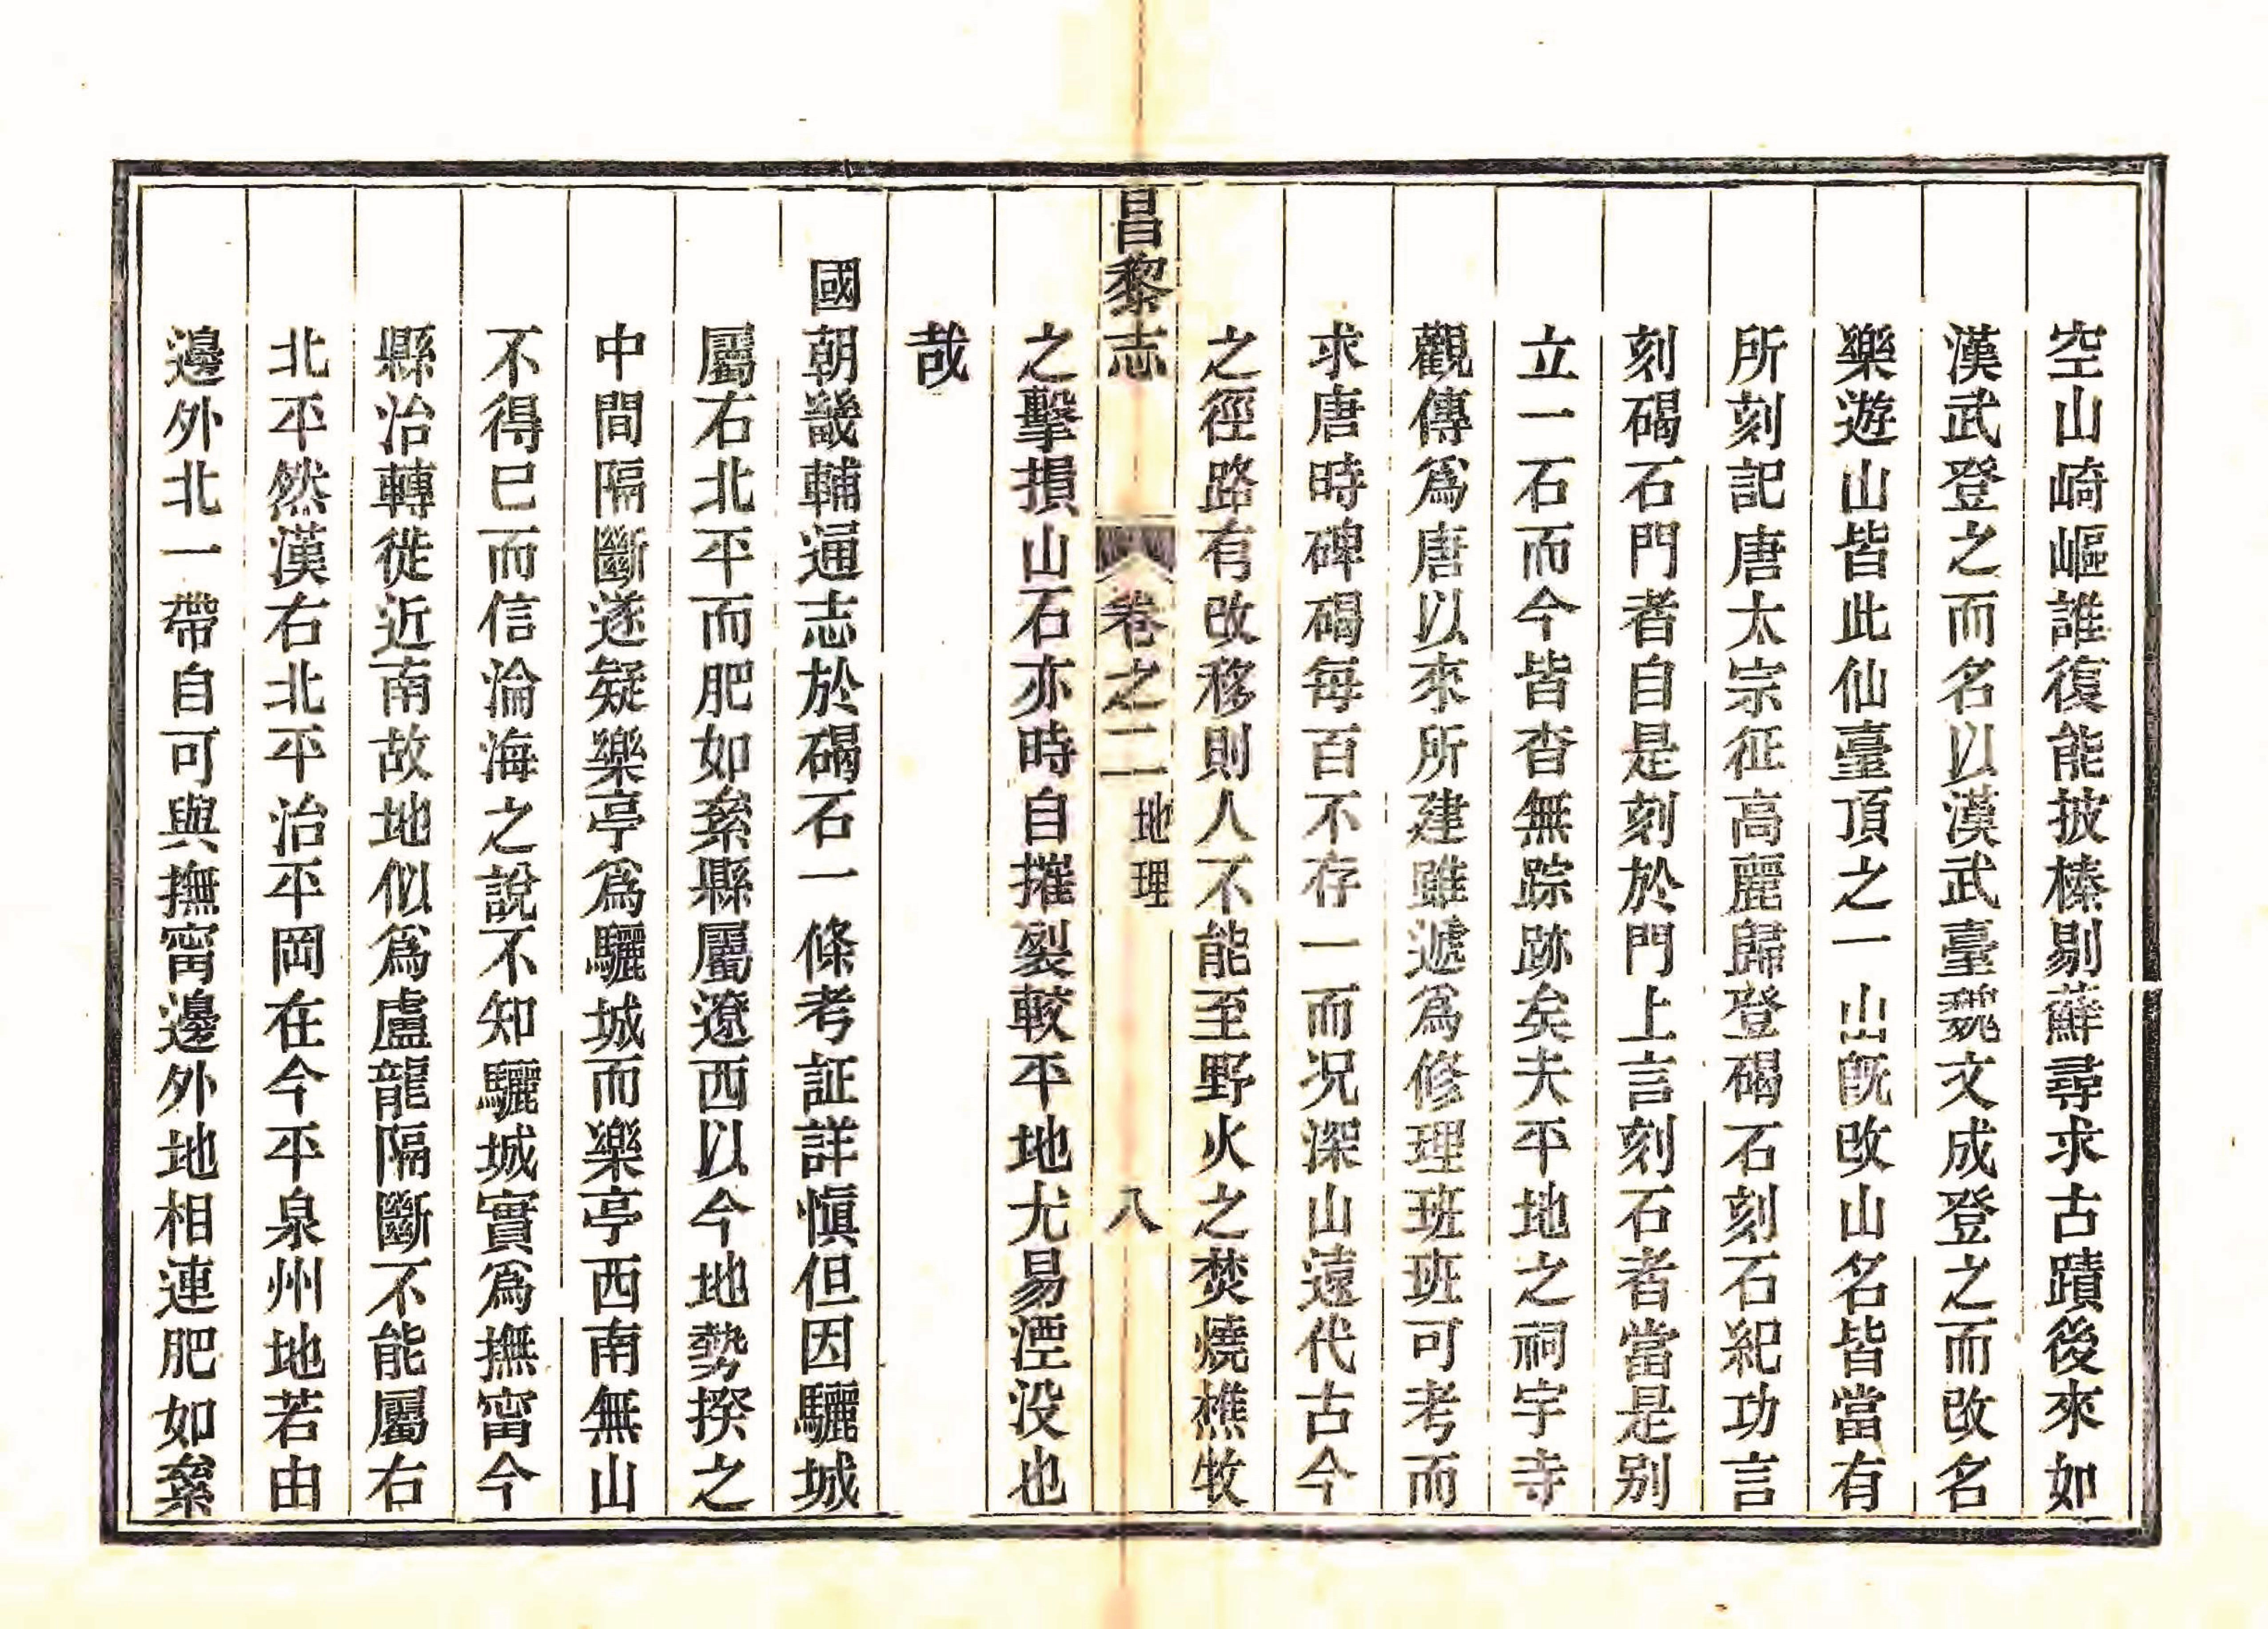 空山崎嶇誰復能披榛剔蘚尋求古蹟後來如
漢武登之而名以漢武臺魏文成登之而改名
樂遊山皆此仙臺頂之一山旣改山名皆當有
所刻記唐太宗征高麗歸登碣石刻石紀功言
刻碣石門者自是刻於門上言刻石者當是别
立一石而今皆杳無踪跡矣夫平地之祠宇寺
觀傳爲唐以來所建雖遞爲修理班班可考而
求唐時碑碣每百不存一而况深山遠代古今
之徑路有改移則人不能至野火之焚燒樵牧
昌黎志
卷之二
地理
八
之擊損山石亦時自摧裂較平地尤易湮没也
哉
國朝畿輔通志於碣石一條考証詳愼但因驪城
屬右北平而肥如絫縣屬遼西以今地勢揆之
中間隔斷遂疑樂亭爲驪城而樂亭西南無山
不得已而信淪海之說不知驪城實爲撫甯今
縣治轉徙近南故地似爲盧龍隔斷不能屬右
北平然漢右北平治平岡在今平泉州地若由
邊外北一帶自可與撫甯邊外地相連肥如絫